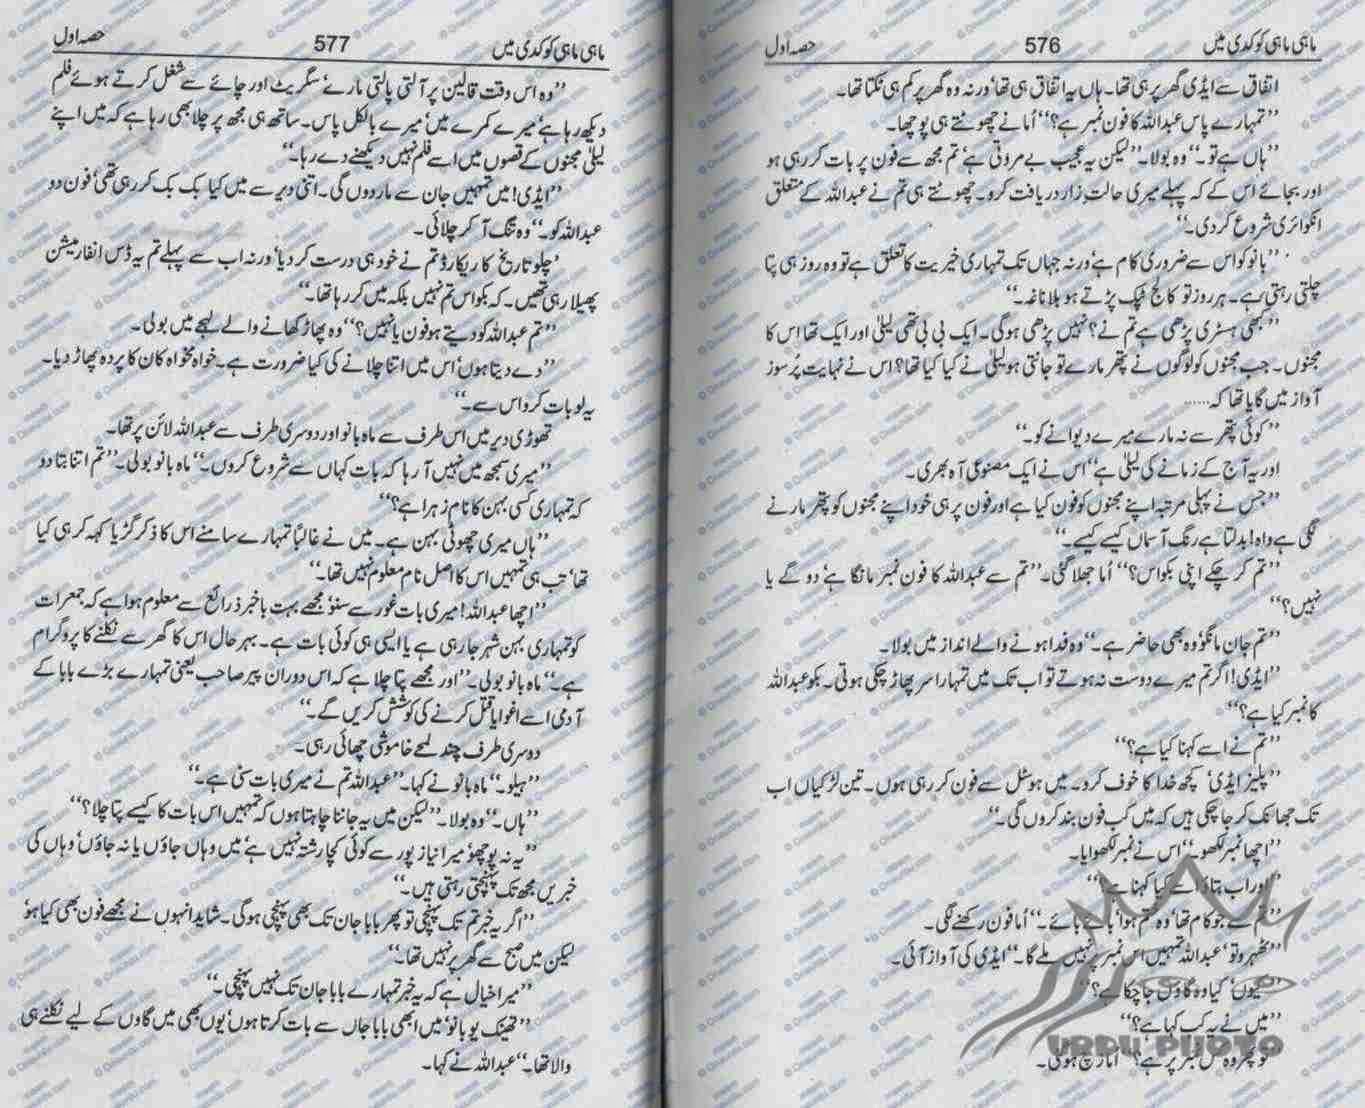 ماہی ماہی کوکدی میں 576 حصہ اول
اتفاق سے ایڈی گھر پر ہی تھا۔ ہاں یہ اتفاق ہی تھا‘ ورنہ وہ گھر پر کم ہی ٹکتا تھا۔
’’تمہارے پاس عبداللہ کا فون نمبر ہے؟‘‘ اُما نے چھوٹتے ہی پوچھا۔
’’ہاں ہے تو۔‘‘ وہ بولا۔ ’’لیکن یہ عجیب بے مروتی ہے‘ تم مجھ سے فون پر بات کر رہی ہو
اور بجائے اس کے کہ پہلے میری حالتِ زار دریافت کرو۔ چھوٹتے ہی تم نے عبداللہ کے متعلق
انکوائری شروع کر دی۔‘‘
’’بانو کو اس سے ضروری کام ہے‘ ورنہ جہاں تک تمہاری خیریت کا تعلق ہے تو وہ روز ہی پتا
چلتی رہتی ہے۔ ہر روز تو کالج ٹپک پڑتے ہو بلاناغہ۔‘‘
’’کبھی ہسٹری پڑھی ہے تم نے؟ نہیں پڑھی ہوگی۔ ایک بی بی تھی لیلیٰ اور ایک تھا اس کا
مجنوں۔ جب مجنوں کو لوگوں نے پتھر مارے تو جانتی ہو لیلیٰ نے کیا کیا تھا؟ اس نے نہایت پُرسوز
آواز میں گایا تھا کہ......
’’کوئی پتھر سے نہ مارے میرے دیوانے کو۔‘‘
اور یہ آج کے زمانے کی لیلیٰ ہے‘‘ اس نے ایک مصنوعی آہ بھری۔
’’جس نے پہلی مرتبہ اپنے مجنوں کو فون کیا ہے اور فون پر ہی خود اپنے مجنوں کو پتھر مارنے
لگی ہے واہ! بدلتا ہے رنگ آسماں کیسے کیسے۔‘‘
’’تم کر چکے اپنی بکواس؟‘‘ اُما جھلا گئی۔ ’’تم سے عبداللہ کا فون نمبر مانگا ہے‘ دو گے یا
نہیں؟‘‘
’’تم جان مانگو‘ وہ بھی حاضر ہے۔‘‘ وہ فدا ہونے والے انداز میں بولا۔
’’ایڈی! اگر تم میرے دوست نہ ہوتے تو اب تک میں تمہارا سر پھاڑ چکی ہوتی۔ بکو عبداللہ
کا نمبر کیا ہے؟‘‘
’’تم نے اسے کہنا کیا ہے؟‘‘
’’پلیز ایڈی‘ کچھ خدا کا خوف کرو۔ میں ہوسٹل سے فون کر رہی ہوں۔ تین لڑکیاں اب
تک جھانک کر جا چکی ہیں کہ میں کب فون بند کروں گی۔‘‘
’’اچھا نمبر لکھو۔‘‘ اس نے نمبر لکھوایا۔
’’اور اب بتاؤ اسے کیا کہنا ہے‘‘
’’تم سے جو کام تھا‘ وہ ختم ہوا‘ بائے بائے۔‘‘ اُما فون رکھنے لگی۔
’’ٹھہرو تو‘ عبداللہ تمہیں اس نمبر پر نہیں ملے گا۔‘‘ ایڈی کی آواز آئی۔
’’کیوں‘ کیا وہ گاؤں جا چکا ہے؟‘‘
’’میں نے یہ کب کہا ہے؟‘‘
’’تو پھر وہ کس نمبر پر ہے؟‘‘ اُما زچ ہو گئی۔
URDU PHOTO
ماہی ماہی کوکدی میں 577 حصہ اول
’’وہ اس وقت قالین پر آلتی پالتی مارے‘ سگریٹ اور چائے سے شغل کرتے ہوئے فلم
دیکھ رہا ہے‘ میرے کمرے میں‘ میرے بالکل پاس۔ ساتھ ہی مجھ پر چلا بھی رہا ہے کہ میں اپنے
لیلیٰ مجنوں کے قصوں میں اسے فلم نہیں دیکھنے دے رہا۔‘‘
’’ایڈی! میں تمہیں جان سے مار دوں گی۔ اتنی دیر سے میں کیا بک بک کر رہی تھی‘ فون دو
عبداللہ کو۔‘‘ وہ تنگ آ کر چلائی۔
’چلو تاریخ کا ریکارڈ تم نے خود ہی درست کر دیا‘ ورنہ اب سے پہلے تم یہ ڈس انفارمیشن
پھیلا رہی تھیں۔ کہ بکواس تم نہیں بلکہ میں کر رہا تھا۔‘‘
’’تم عبداللہ کو دیتے ہو فون یا نہیں؟‘‘ وہ پھاڑ کھانے والے لہجے میں بولی۔
’’دے دیتا ہوں‘ اس میں اتنا چلانے کی کیا ضرورت ہے۔ خواہ مخواہ کان کا پردہ پھاڑ دیا۔
یہ لو بات کرو اس سے۔‘‘
تھوڑی دیر میں اس طرف سے ماہ بانو اور دوسری طرف سے عبداللہ لائن پر تھا۔
’’میری سمجھ میں نہیں آ رہا کہ بات کہاں سے شروع کروں۔‘‘ ماہ بانو بولی۔ ’’تم اتنا بتا دو
کہ تمہاری کسی بہن کا نام زہرا ہے؟‘‘
’’ہاں میری چھوٹی بہن ہے۔ میں نے غالباً تمہارے سامنے اس کا ذکر گڑیا کہہ کر ہی کیا
تھا‘ تب ہی تمہیں اس کا اصل نام معلوم نہیں تھا۔‘‘
’’اچھا عبداللہ! میری بات غور سے سنو‘ مجھے بہت باخبر ذرائع سے معلوم ہوا ہے کہ جمعرات
کو تمہاری بہن شہر جا رہی ہے یا ایسی ہی کوئی بات ہے۔ بہرحال اس کا گھر سے نکلنے کا پروگرام
ہے۔‘‘ ماہ بانو بولی۔ ’’اور مجھے پتا چلا ہے کہ اس دوران پیر صاحب یعنی تمہارے بڑے بابا کے
آدمی اسے اغوا یا قتل کرنے کی کوشش کریں گے۔‘‘
دوسری طرف چند لمحے خاموشی چھائی رہی۔
’’ہیلو۔‘‘ ماہ بانو نے کہا۔ ’’عبداللہ تم نے میری بات سنی ہے۔‘‘
’’ہاں۔‘‘ وہ بولا۔ ’’لیکن میں یہ جاننا چاہتا ہوں کہ تمہیں اس بات کا کیسے پتا چلا؟‘‘
’’یہ نہ پوچھو‘ میرا نیاز پور سے کوئی کچا رشتہ نہیں ہے‘ میں وہاں جاؤں یا نہ جاؤں‘ وہاں کی
خبریں مجھ تک پہنچتی رہتی ہیں۔‘‘
’’اگر یہ خبر تم تک پہنچی تو پھر بابا جان تک بھی پہنچی ہوگی۔ شاید انہوں نے مجھے فون بھی کیا ہو‘
لیکن میں صبح سے گھر پر نہیں تھا۔‘‘
’’میرا خیال ہے کہ یہ خبر تمہارے بابا جان تک نہیں پہنچی۔‘‘
’’تھینک یو بانو‘ میں ابھی بابا جاں سے بات کرتا ہوں‘ یوں بھی میں گاوں کے لیے نکلنے ہی
والا تھا۔‘‘ عبداللہ نے کہا۔